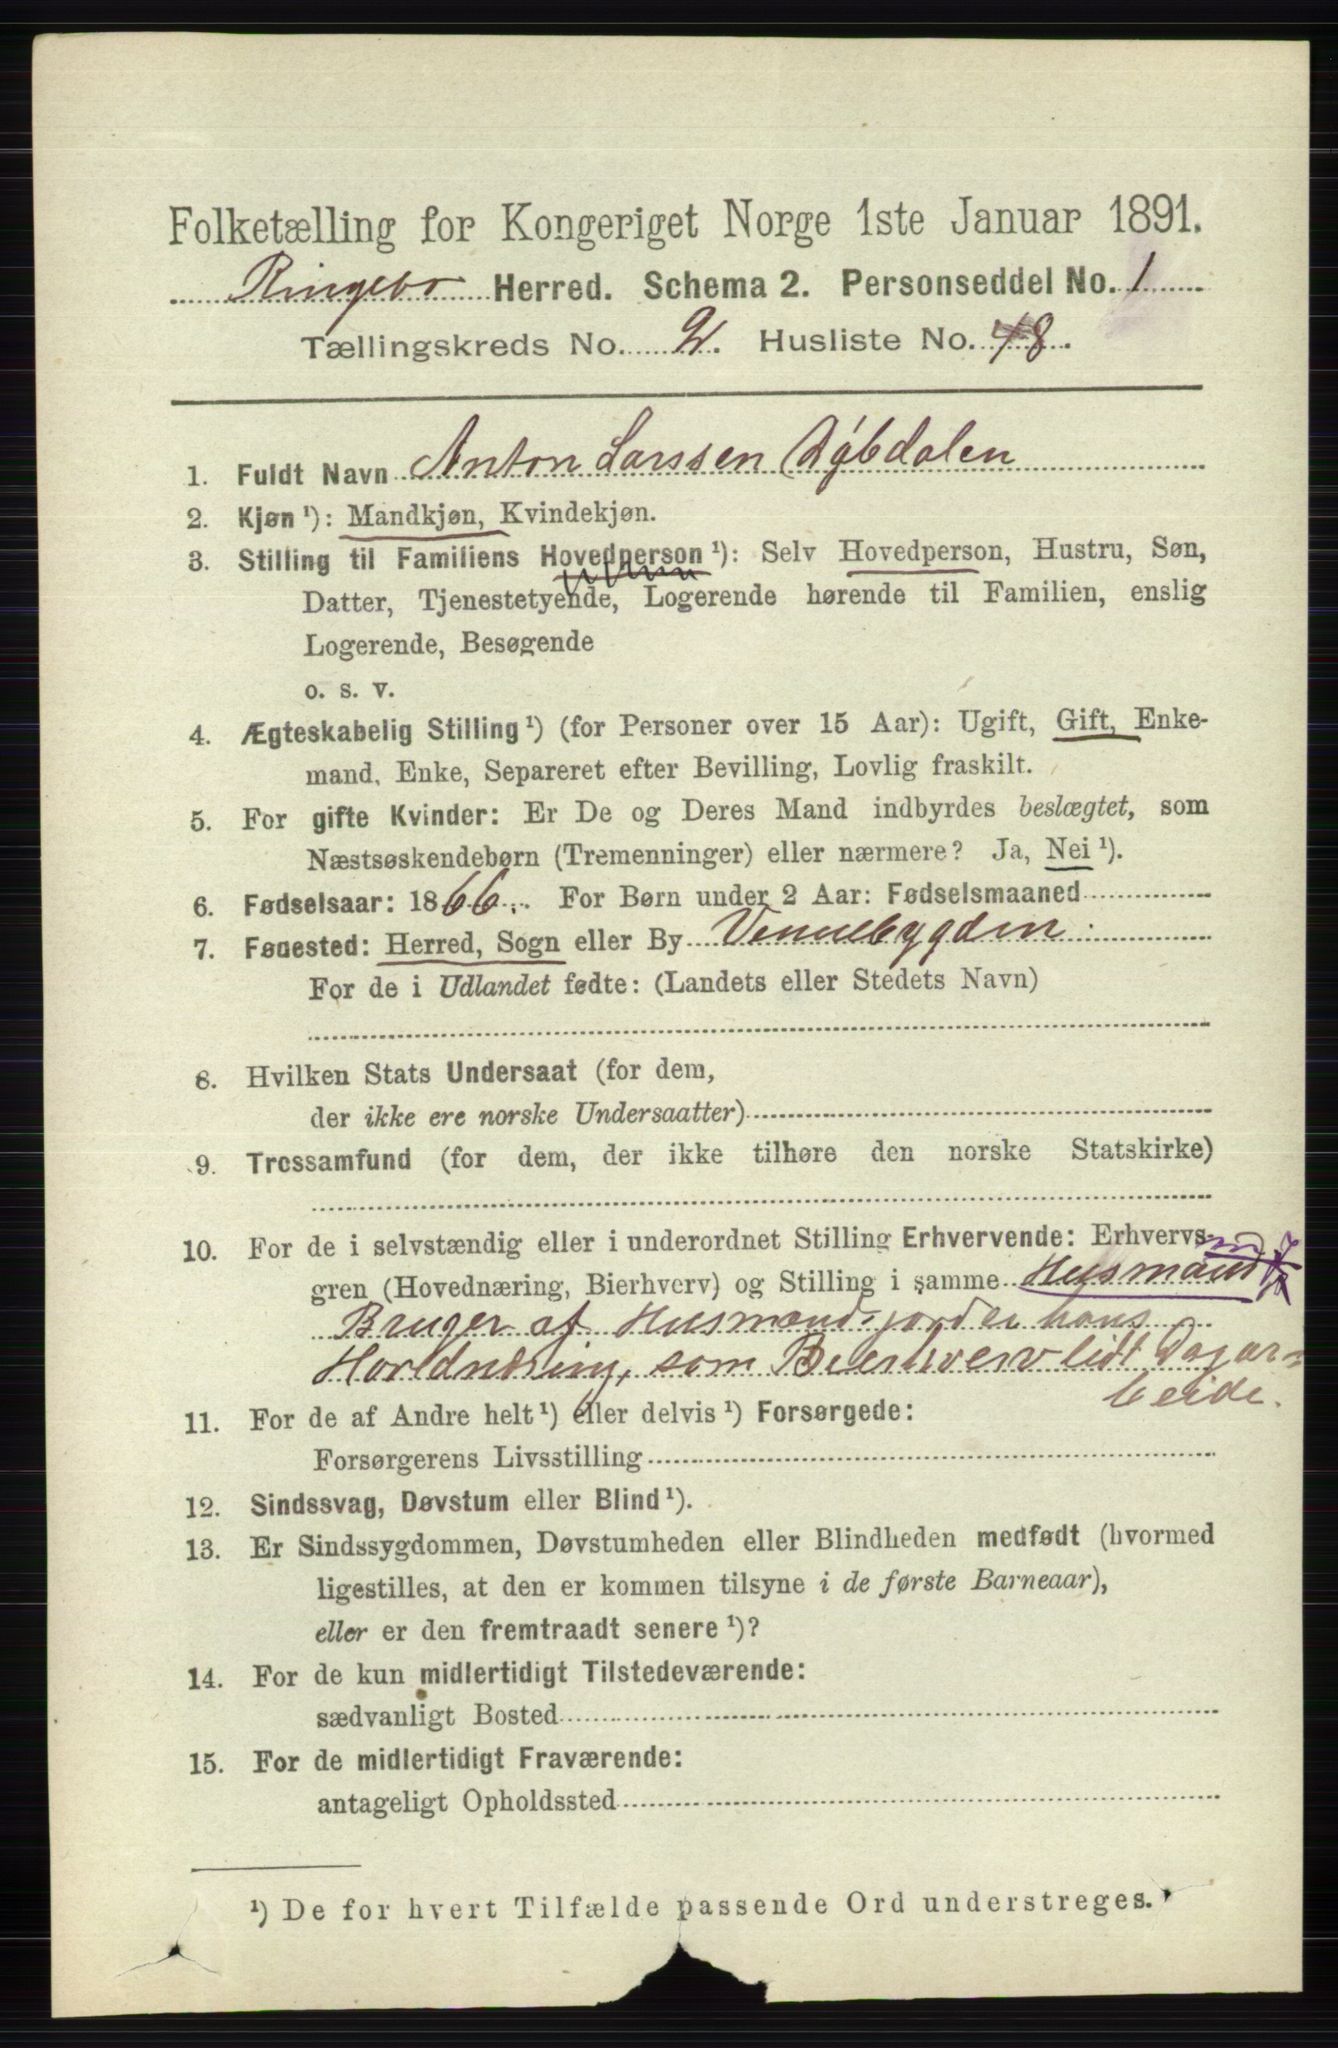 Folketælling for Kongeriget Norge 1ste Januar 1891.
Ringebo Herred. Schema 2. Personseddel No. 1
Tællingskreds No. 2. Husliste No. 48.
1. Fuldt Navn Anton Larssen Dybdalen
2. Kjøn ¹): Mandkjøn, Kvindekjøn.
3. Stilling til Familiens Hovedperson ¹): Selv Hovedperson, Hustru, Søn,
Datter, Tjenestetyende, Logerende hørende til Familien, enslig
Logerende, Besøgende
o. s. v.
4. Ægteskabelig Stilling ¹) (for Personer over 15 Aar): Ugift, Gift, Enke-
mand, Enke, Separeret efter Bevilling, Lovlig fraskilt.
5. For gifte Kvinder: Er De og Deres Mand indbyrdes beslægtet, som
Næstsøskendebørn (Tremenninger) eller nærmere? Ja, Nei ¹).
6. Fødselsaar: 1866. For Børn under 2 Aar: Fødselsmaaned
7. Fødested: Herred, Sogn eller By Vennebygden
For de i Udlandet fødte: (Landets eller Stedets Navn)
8. Hvilken Stats Undersaat (for dem,
der ikke ere norske Undersaatter)
9. Trossamfund (for dem, der ikke tilhøre den norske Statskirke)
10. For de i selvstændig eller i underordnet Stilling Erhvervende: Erhvervs-
gren (Hovednæring, Bierhverv) og Stilling i samme Husmand
Bruger af Husmandsjord er hans
Hovdnæring, som Beerhverv lidt Dagar-
beide.
11. For de af Andre helt ¹) eller delvis ¹) Forsørgede:
Forsørgerens Livsstilling
12. Sindssvag, Døvstum eller Blind ¹).
13. Er Sindssygdommen, Døvstumheden eller Blindheden medfødt (hvormed
ligestilles, at den er kommen tilsyne i de første Barneaar),
eller er den fremtraadt senere ¹)?
14. For de kun midlertidigt Tilstedeværende:
sædvanligt Bosted
15. For de midlertidigt Fraværende:
antageligt Opholdssted
¹) De for hvert Tilfælde passende Ord understreges.